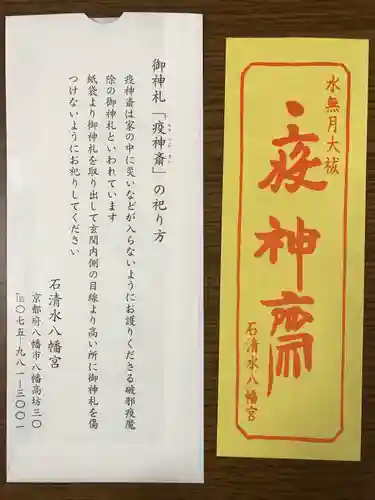 御神札「疫神斎」の祀り方
疫神斎は家の中に災いなどが入らないようにお護りくださる破邪疫魔
除の御神札といわれています
紙袋より御神札を取り出して玄関内側の目線より高い所に御神札を傷
つけないようにお祀りしてください
石清水八幡宮
京都府八幡市八幡高坊三〇
℡〇七五–九八一–三〇〇一
水無月大祓
疫神齋
石清水八幡宮